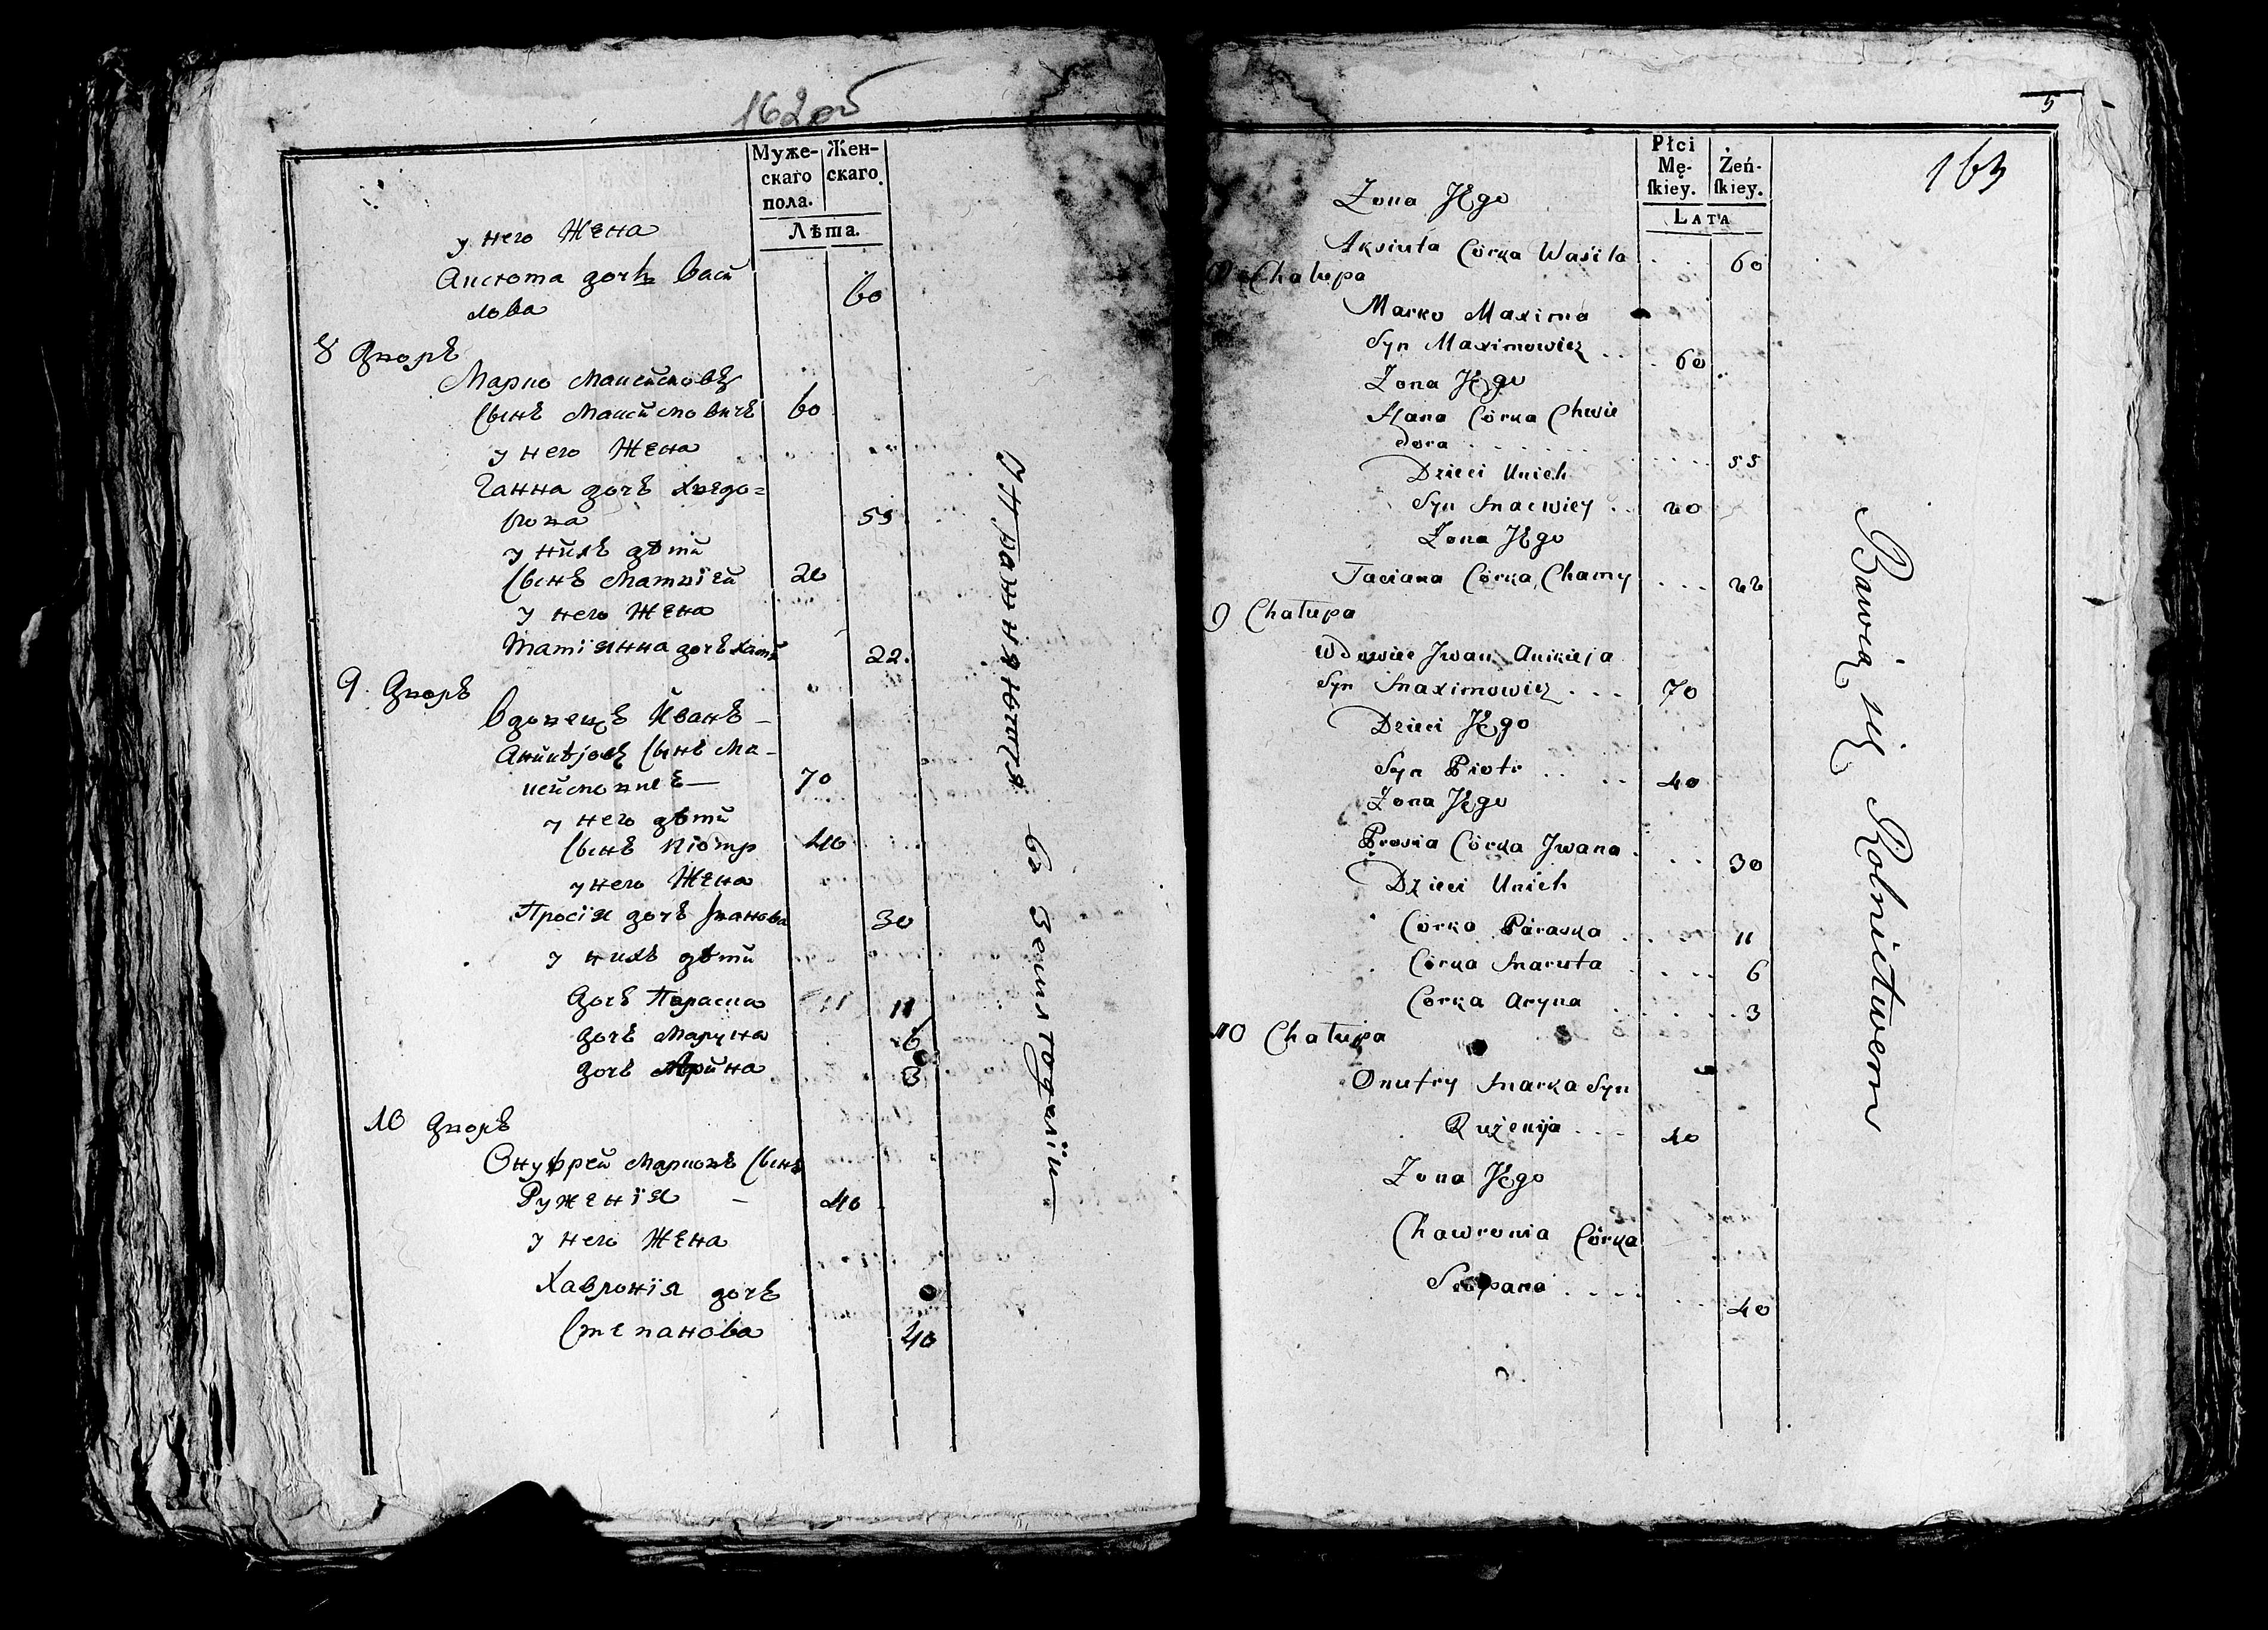 162об
Муже- Жен-
скаго скаго
пола.
Лѣта.
у него Жена
Аксюта дочь Васи
лова 60
8 Дворъ
Марко Максимовъ
Сынъ Максимовичъ 60
у него Жена
Ганна дочъ Хведо=
рова 55
у нихъ дѣти
Сынъ Матвїей 20
у него Жена
Татїянна дочъ Хамы 22.
9. Дворъ
Вдовецъ Иванъ
Аникѣјовъ Сынъ Ма-
ксимовичъ 70
у него дѣти
Сынъ Піотръ 40
у него Жена
Просїя дочъ Іванова 30
у нихъ дѣти
Дочъ Параска 11
Дочъ Марута 6
Дочъ Арина 3
10 Дворъ
Онуфрей Марковъ Сынъ
Руженїя 40
у него Жена
Хавронїя дочъ
Степанова 40
землѣодѣлїи
5
163
Płci
Mę- Żeń-
ſkiey. ſkiey.
LATA
Żona JEgo
Aksiuta Córka Wasila 60
Chałupa
Marko Maxima
Syn Maximowicz 60
Żona JEgo
Hana Córka Chwie
dora 55
Dzieci Unich
Syn Macwiey 20
Żona JEgo
Taciana Córka Chamy 22
9 Chałupa
Wdowiec Jwan Anikieja
Syn Maximowicz 70
Dzieci JEgo
Syn Piotr 40
Żona JEgo
Prosia Córka Jwana 30
Dzieci Unich
Córka Paraska 11
Córka Maruta 6
Córka Aryna 3
10 Chałupa
Onufry Marka Syn
Rużenija 40
Żona JEgo
Chawronia Córka
Sciepana 40
Bawią się Rolnictwem